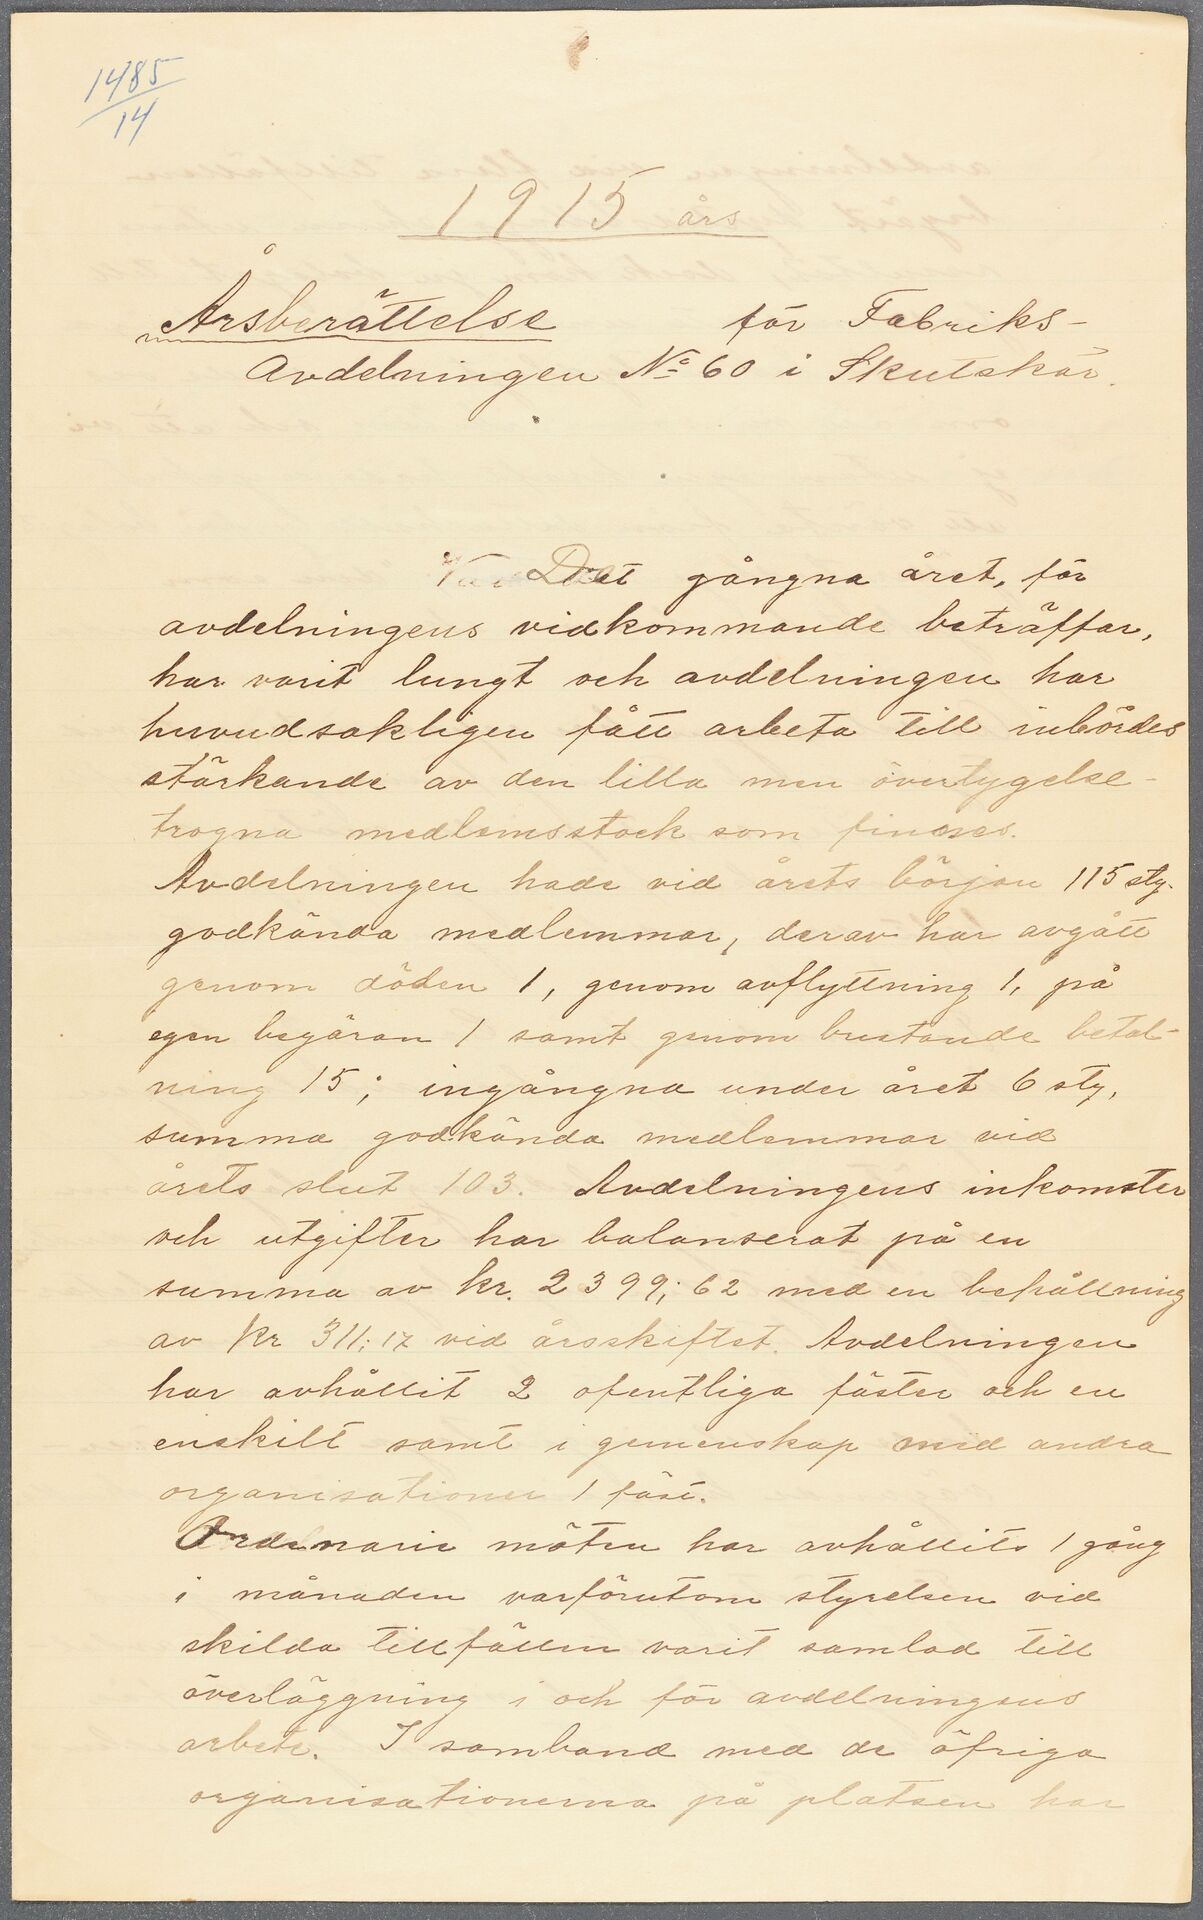 1485
14
1915 års
Årsberättelse för Fabriks-
Avdelningen No 60 i Skutskär.
Det gångna året, för
avdelningens vidkommande beträffar,
har varit lungt och avdelningen har
huvudsakligen fått arbeta till inbördes
stärkande av den lilla men övertygelse-
trogna medlemsstock som finnes.
Avdelningen hade vid årets början 115 sty.
godkända medlemmar, derav har avgått
genom döden 1, genom avflyttning 1, på
egen begäran 1 samt genom bristande betal-
ning 15; ingångna under året 6 sty,
summa godkända medlemmar vid
årets slut 103. Avdelningens inkomster
och utgifter har balanserat på en
summa av kr. 2399; 62 med en behållning
av kr 311; 17 vid årsskiftet. Avdelningen
har avhållit 2 ofentliga fäster och en
enskilt samt i gemenskap med andra
organisationer 1 fäst.
Ordenarie möten har avhållits 1 gång
i månaden varförutom styrelsen vid
skilda tillfällen varit samlad till
överläggning i och för avdelningens
arbete. I samband med de öfriga
organisationerna på platsen har